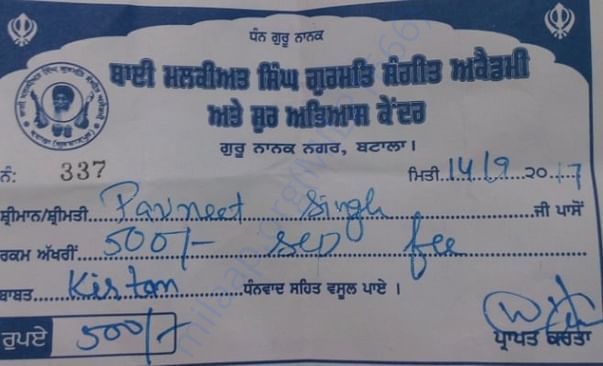 ਧੰਨ ਗੁਰੂ ਨਾਨਕ
ਭਾਈ ਮਲਕੀਅਤ ਸਿੰਘ ਗੁਰਮਤਿ ਸੰਗੀਤ ਅਕੈਡਮੀ
ਅਤੇ ਸੁਰ ਅਭਿਆਸ ਕੇਂਦਰ
ਗੁਰੂ ਨਾਨਕ ਨਗਰ, ਬਟਾਲਾ।
ਨੰ: 337 ਮਿਤੀ 14/9 ੨੦17
ਸ਼੍ਰੀਮਾਨ/ਸ਼੍ਰੀਮਤੀ Pavneet Singh ਜੀ ਪਾਸੋਂ
ਰਕਮ ਅੱਖਰੀਂ 500/- sep fee
ਬਾਬਤ Kirtan ਧੰਨਵਾਦ ਸਹਿਤ ਵਸੂਲ ਪਾਏ।
ਰੁਪਏ 500/- ਪ੍ਰਾਪਤ ਕਰਤਾ